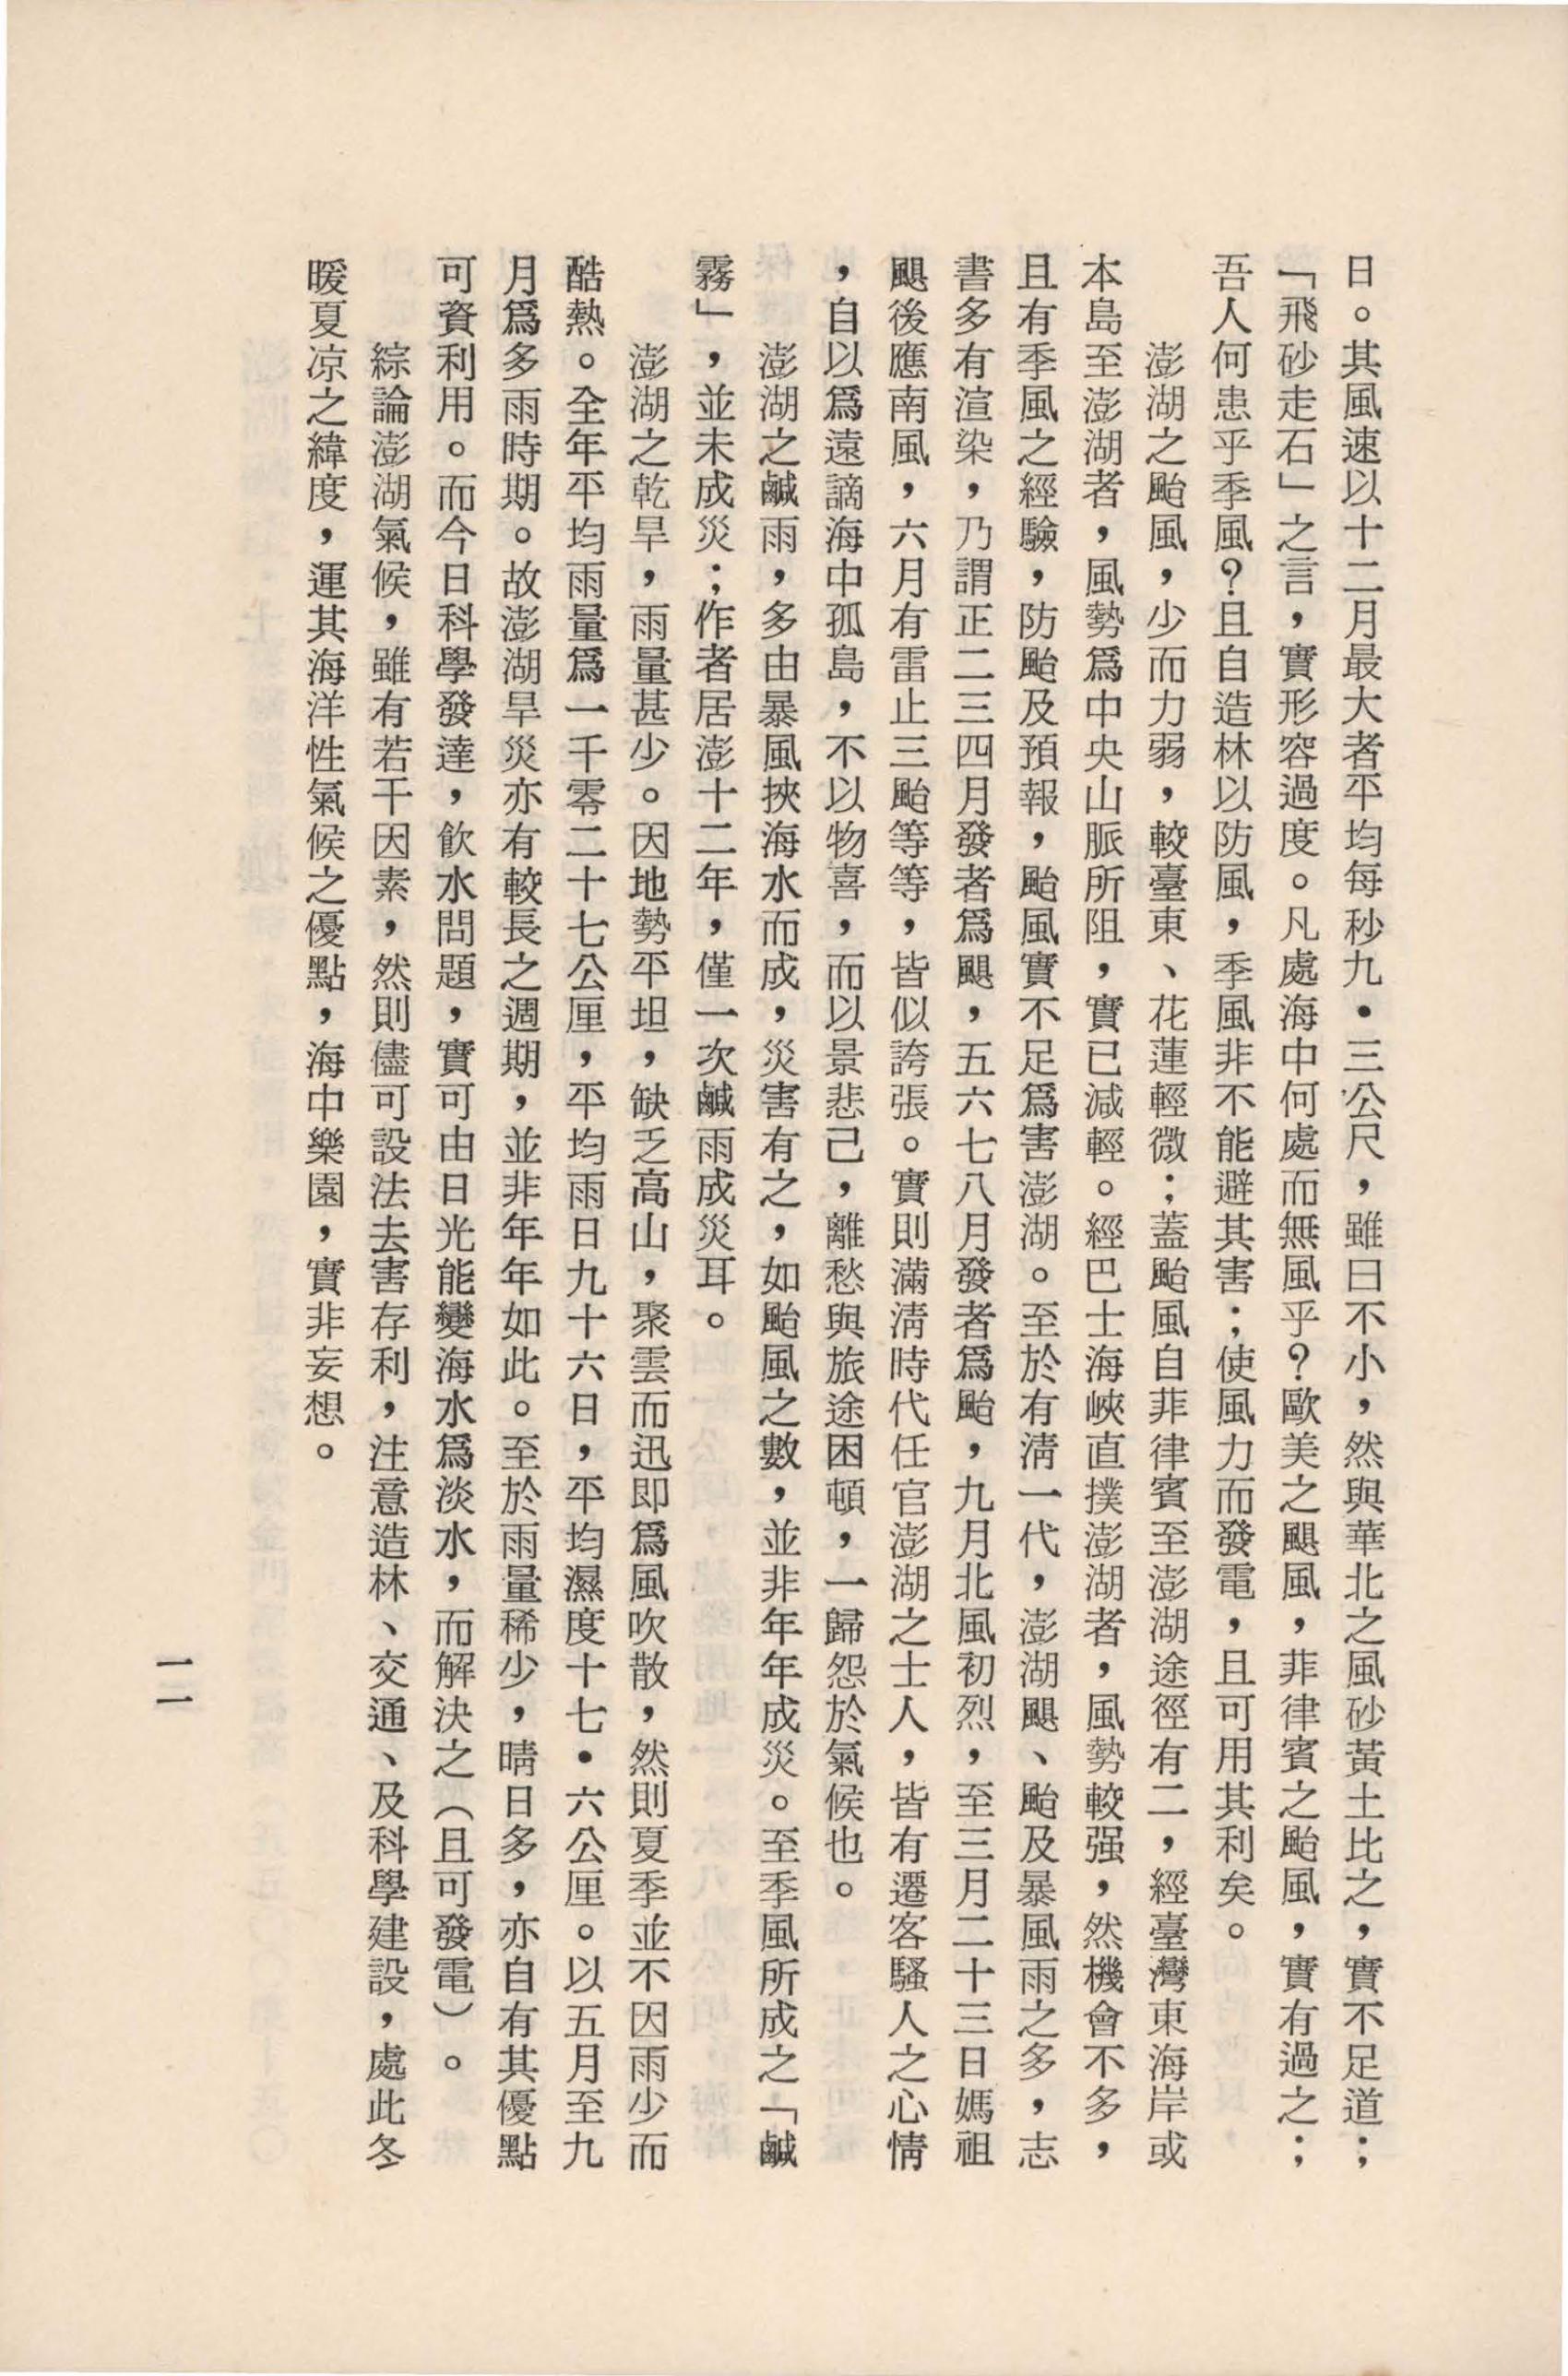 日。其風速以十二月最大者平均每秒九・三公尺，雖曰不小，然與華北之風砂黃土比之，實不足道；
「飛砂走石」之言，實形容過度。凡處海中何處而無風乎？歐美之颶風，菲律賓之颱風，實有過之；
吾人何患乎季風？且自造林以防風，季風非不能避其害；使風力而發電，且可用其利矣。
澎湖之颱風，少而力弱，較臺東、花蓮輕微；蓋颱風自菲律賓至澎湖途徑有二，經臺灣東海岸或
本島至澎湖者，風勢爲中央山脈所阻，實已減輕。經巴士海峽直撲澎湖者，風勢較强，然機會不多，
且有季風之經驗，防颱及預報，颱風實不足爲害澎湖。至於有淸一代，澎湖颶、颱及暴風雨之多，志
書多有渲染，乃謂正二三四月發者爲颶，五六七八月發者爲颱，九月北風初烈，至三月二十三日媽祖
颶後應南風，六月有雷止三颱等等，皆似誇張。實則滿淸時代任官澎湖之士人，皆有遷客騷人之心情
，自以爲遠謫海中孤島，不以物喜，而以景悲己，離愁與旅途困頓，一歸怨於氣候也。
澎湖之鹹雨，多由暴風挾海水而成，災害有之，如颱風之數，並非年年成災。至季風所成之「鹹
霧」，並未成災；作者居澎十二年，僅一次鹹雨成災耳。
澎湖之乾旱，雨量甚少。因地勢平坦，缺乏高山，聚雲而迅即爲風吹散，然則夏季並不因雨少而
酷熱。全年平均雨量爲一千零二十七公厘，平均雨日九十六日，平均濕度十七・六公厘。以五月至九
月爲多雨時期。故澎湖旱災亦有較長之週期，並非年年如此。至於雨量稀少，晴日多，亦自有其優點
可資利用。而今日科學發達，飮水問題，實可由日光能變海水爲淡水，而解決之（且可發電）。
綜論澎湖氣候，雖有若干因素，然則儘可設法去害存利，注意造林、交通、及科學建設，處此冬
暖夏凉之緯度，運其海洋性氣候之優點，海中樂園，實非妄想。
一一